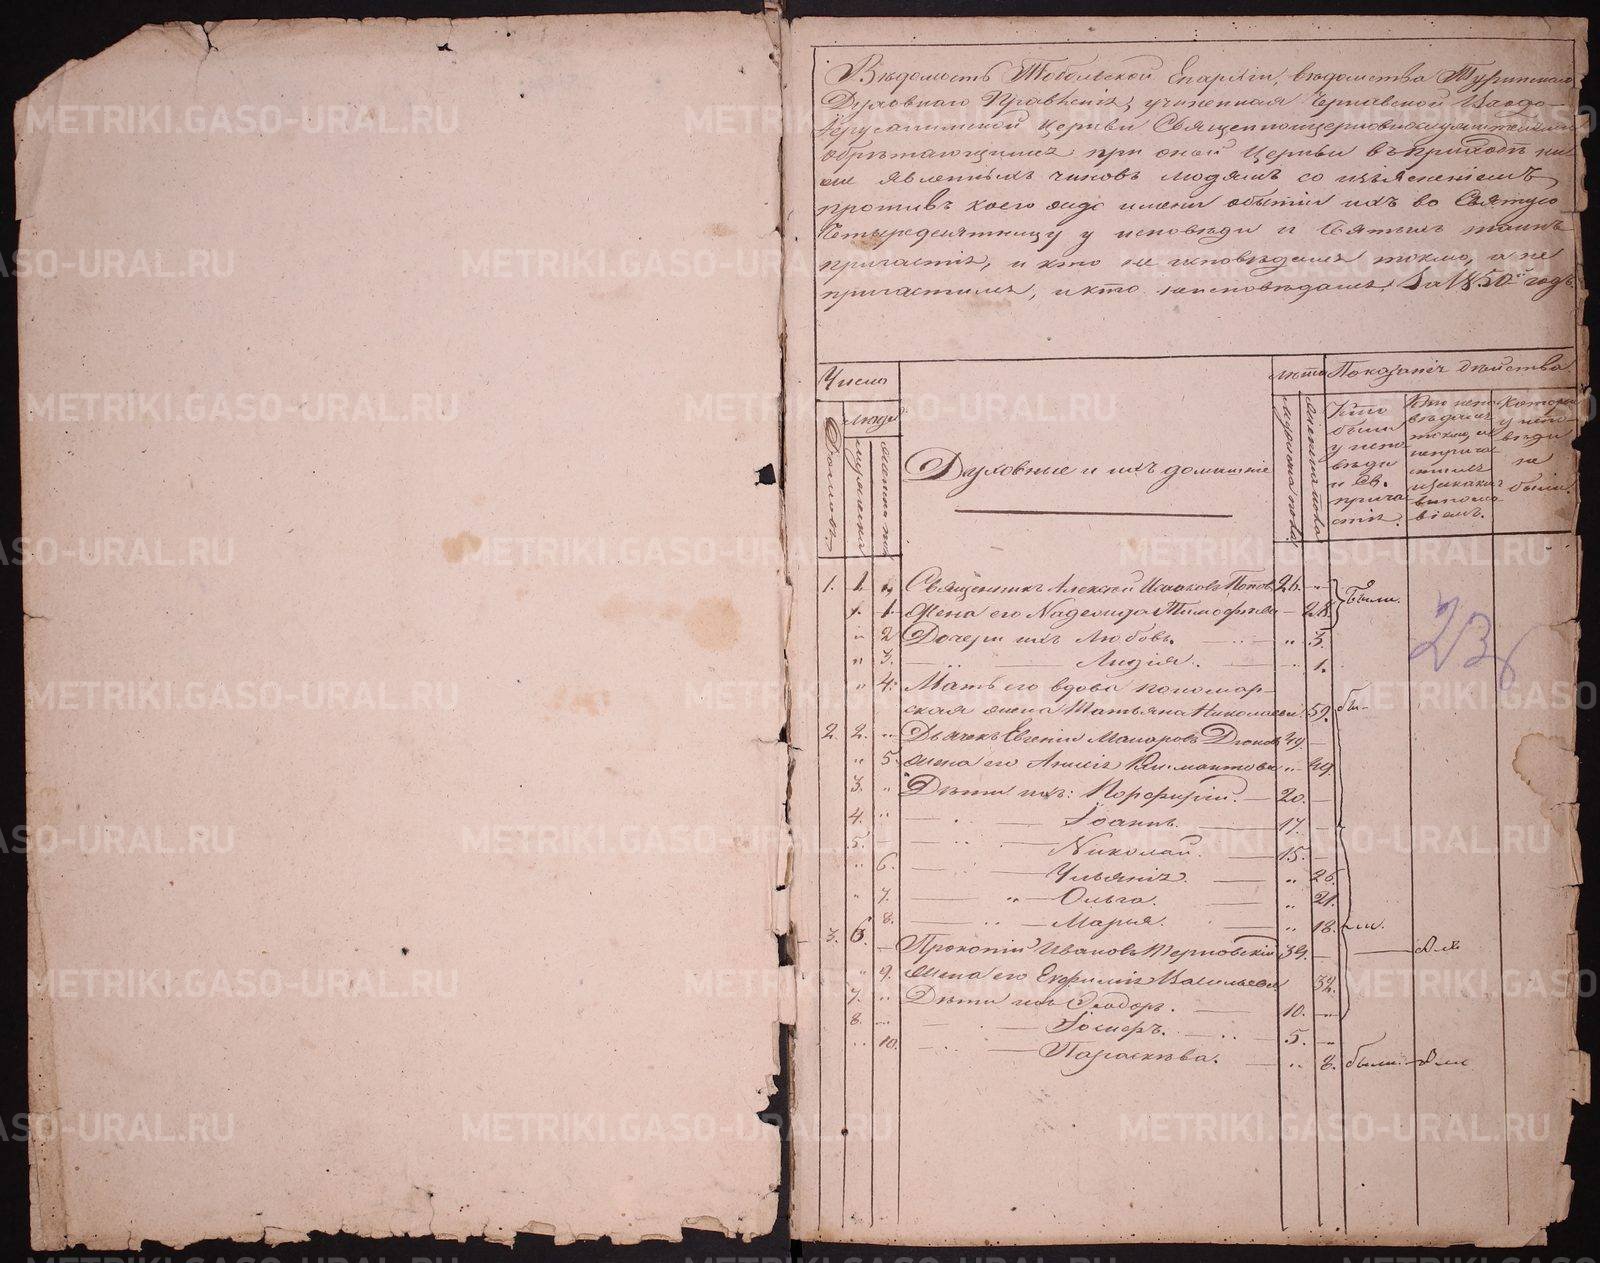 Вѣдомость Тобольской Епархіи, вѣдомства Туринскаго
Духовнаго Правленія, учиненная Чернавской Входо-
Іерусалимской Церкви Священноцерковнослужителями
обрѣтающимся при оной Церкви въ приходѣ ни
же явленныхъ чиновъ людямъ со изъясненіемъ
противъ коего ждо имени о бытіи ихъ во Святую
Четыредесятницу у исповѣди и Святыхъ таинъ
причастія, и кто не исповѣдался токмо, а не
причастился, и кто не исповѣдался. За 1850й годъ.
Число
Домовъ.
Людей
мужеска
женска
Духовные и ихъ домашніе
лѣта
мужеска пола
женска пола
Показаніе дѣйства
Кто
были
у испо
вѣди
и Св.
прича
стія.
Кто испо
вѣдался
токмо, а
не прича
стился
и за какимъ
винословіемъ.
Которые
у испо
вѣди
не
были.
1. 1. „ Священникъ Алексѣй Поповъ 26. „ Были.
„ 1. Жена его Надежда Тимофѣева — 28.
„ 2 Дочери ихъ Любовь. „ 3.
„ 3. Лидія. „ 1.
„ 4. Мать его вдова пономар-
ская жена Татьяна Николаева. 59. бы-
2. 2. „ Дьячекъ Евгеній Макаровъ 49 —
„ 5. жена его „ 49.
3. „ Дѣти ихъ: Порфирій. — 20. —
4. „ Іоаннъ. 17.
5. — Николай. 15. —
„ 6. Ульянія. „ 26.
„ 7. Ольга. „ 21.
8. Марія. 18. ли.
3. 6. — Прокопій Ивановъ Терновскій 39. —
„ 9. жена его Васильева 32.
7. „ Дѣти ихъ Ѳеодоръ. 10. „
8. — Іосифъ. 5. „
„ 10. Параскѣва. „ 8. были
236
METRIKI.GASO-URAL.RU